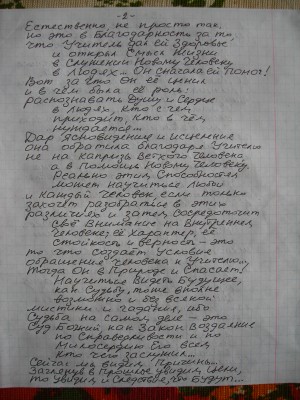 -2-
Естественно не просто так,
но это в Благодарность за то,
что Учитель дал ей Здоровье
и открыл Смысл Жизни
в Служении Новому Человеку
в Людях... Он Спасал ей Помог!
Вот за что Он её ценил
и в чём была её роль:
распознавать Душу и Сердце
в людях, кто с чем
приходит, кто в чём
нуждается...
Дар Ясновидения и исцеление
она обратила благодаря Учителю
не на капризы Ветхого Человека
а в Помощь Новому Человеку.
Реально этих Способней
может научиться любой
и каждый человек, если только
захочет разобраться в этих
различиях и затем сосредоточит
своё Внимание на Внутреннем
Человеке; её Характер, её
стойкость и верность - это
то что создаёт Условие
обращения человека к Учителю...
Тогда Он в Природе и Спасает!
Научиться Видеть Будущее,
как Судьбу, тоже вполне
возможно и без всякой
мистики и гадания, ибо
Судьба на самом деле - это
Суд Божий, как Закон Воздаяния
по Справедливости и по
Милосердию Его всем,
кто чего заслужил...
Сейчас мы видим Причины...
Заглянув в Прошлое увидим Цели,
то увидим и Следствие, что Будут...